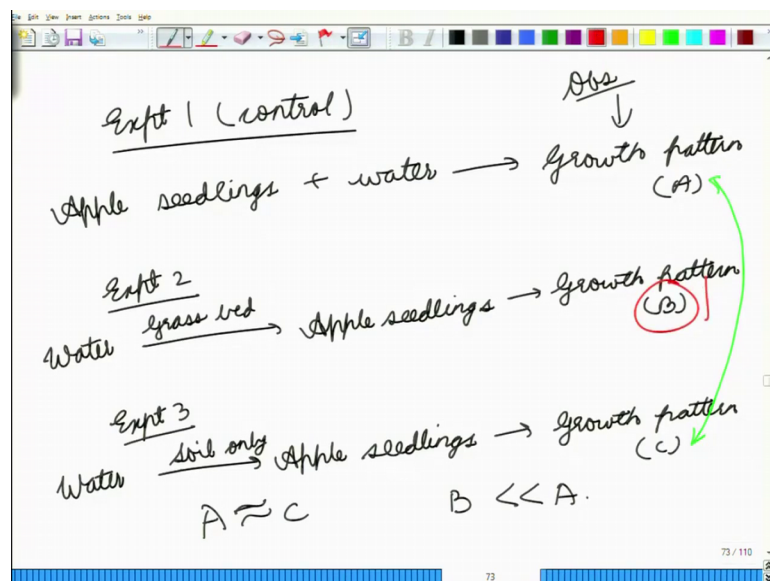 File Edit View Insert Actions Tools Help
B I
Expt 1 (control)
Obs
Apple seedlings + water → Growth pattern
(A)
Expt 2
Water Grass bed → Apple seedlings → Growth pattern
(B)
Expt 3
Water Soil only → Apple seedlings → Growth pattern
(C)
A ≈ C B << A.
73 / 110
73